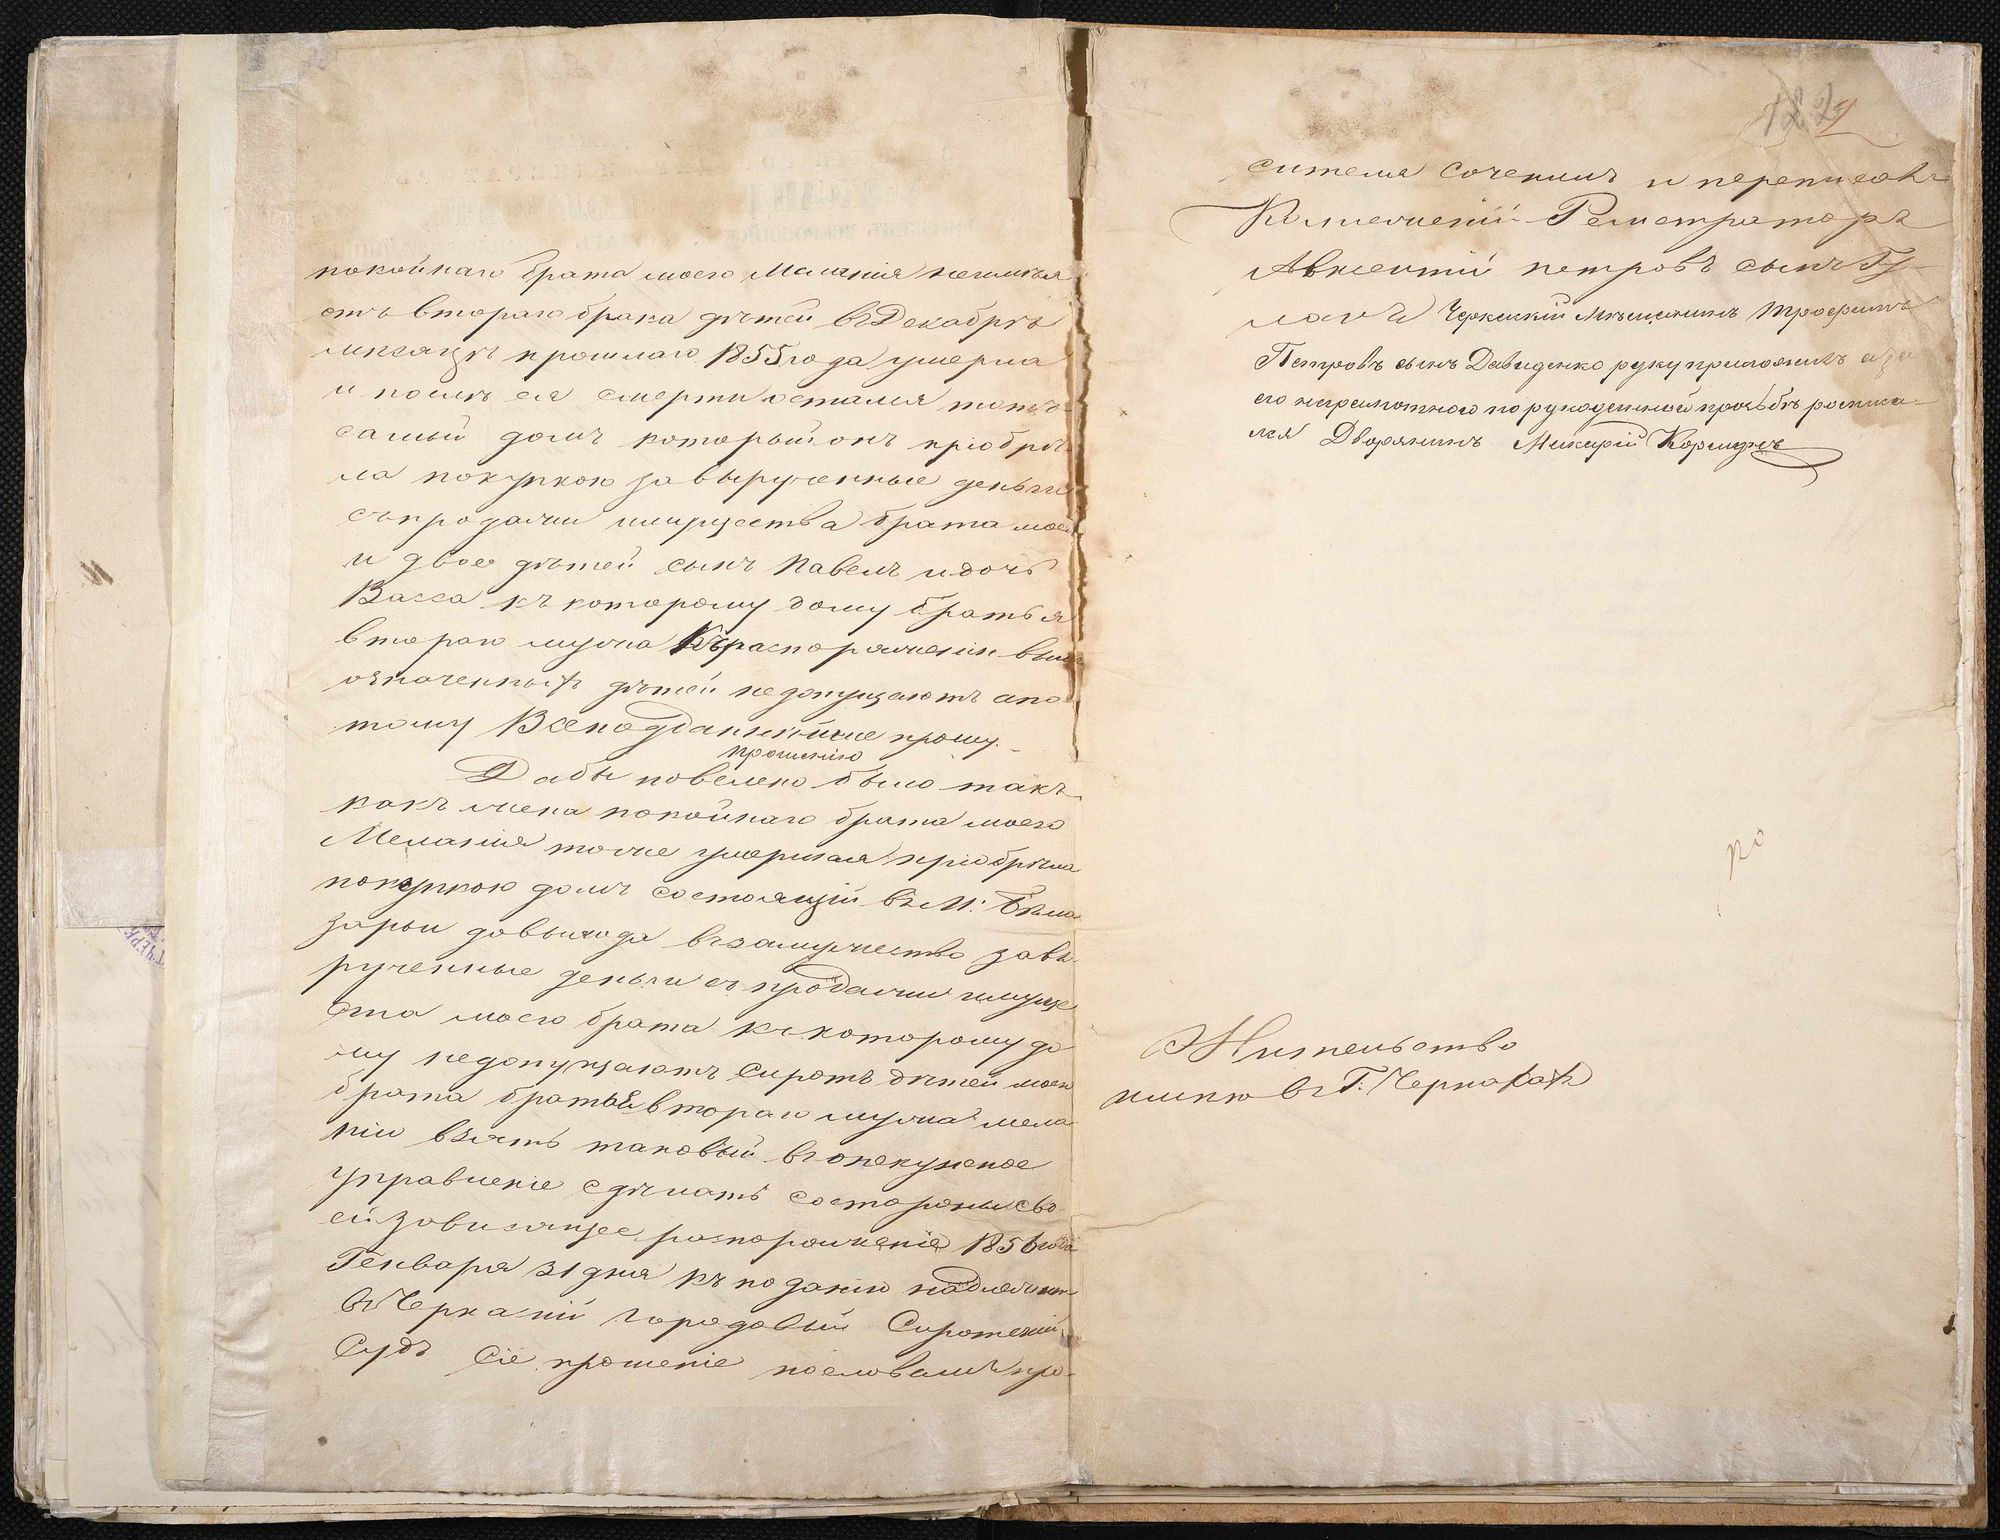 покойнаго брата моего Меланія неимѣя
отъ втораго брака дѣтей въ Декабрѣ
мѣсяцѣ прошлаго 1855 года умерла
и послѣ ея смерти остался тотъ
самый домъ который онъ пріобрѣ-
ла покупкою за вырученные деньги
съ продажи имущества брата моего
и двое дѣтей сынъ Павелъ и дочь
Васса къ которому дому братья
втораго мужа къ распоряженію выше
означенныхъ дѣтей недопущаютъ а по
тому Всеподданнѣйше прошу.
прошенію
Дабы повелено было такъ
какъ жена покойнаго брата моего
Меланія тоже умершая пріобрѣла
покупкою домъ состоящій въ М: Бѣло
зарьи до выхода въ замужество за вы
рученные деньги съ продажи имуще
ства моего брата къ которому до
му недопущаютъ сиротъ дѣтей моего
брата братья втораго мужа мела
ніи взять таковый въ опекунское
управленіе сдѣлать состороны сво
ей зависящее распоряженіе 1856 года
Генваря 31 дня къ поданію надлежитъ
въ Черкаскій городовый Сиротскій
Судъ Сіе прошеніе пословамъ про-
1829
сителя сочинилъ и переписалъ
Колежскій Регистраторъ
Авксентій петровъ сынъ
Черкаскій мѣщанинъ Трофимъ
Петровъ сынъ Давиденко руку приложилъ а за
его неграмотнаго по рукоданной прозьбѣ росписа-
лся Дворянинъ Макарій
Жительство
имѣю въ Г: Черкасахъ